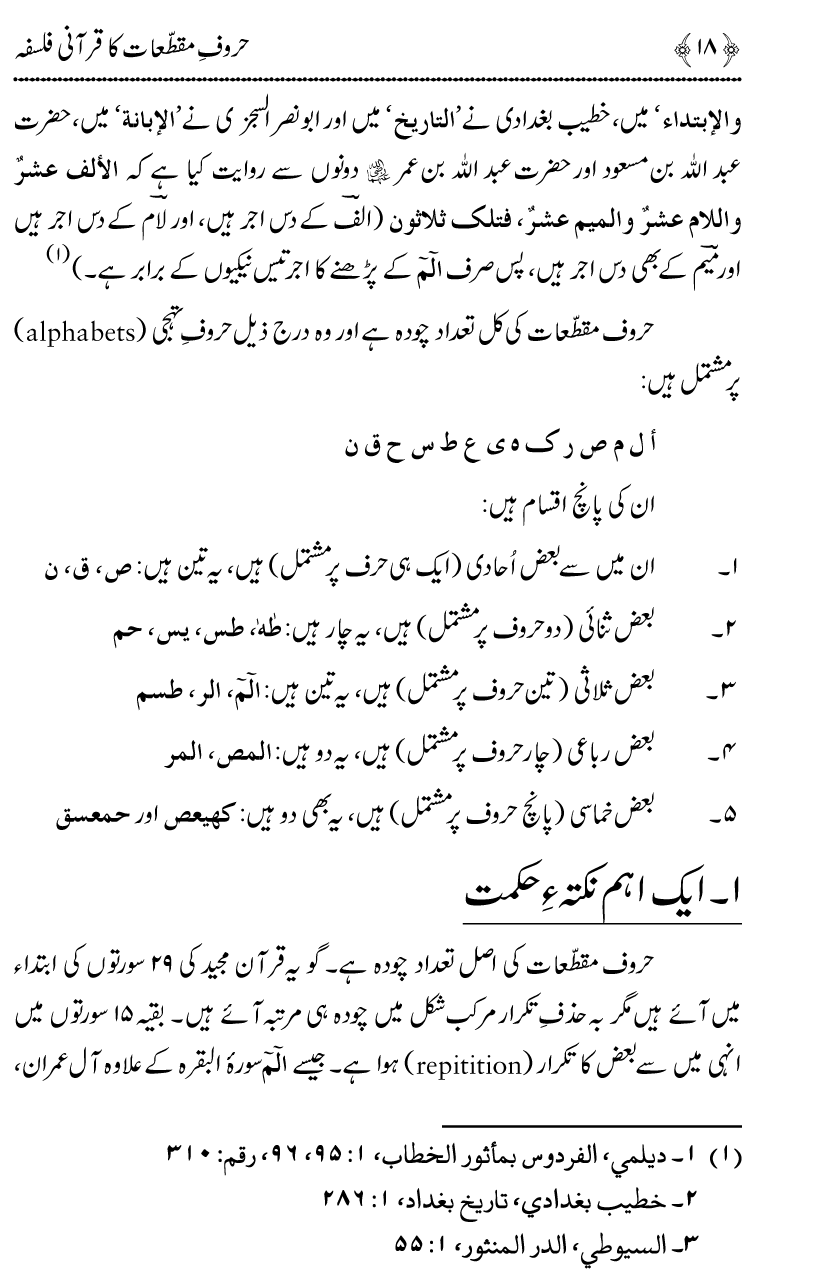 ﴿۱۸﴾ حروفِ مقطّعات کا قرآنی فلسفہ
والإبتداء‘ میں، خطیب بغدادی نے ’التاریخ‘ میں اور ابو نصر السجزی نے ’الإبانة‘ میں، حضرت
عبد اللہ بن مسعود اور حضرت عبد اللہ بن عمر رضی اللہ عنہم دونوں سے روایت کیا ہے کہ الألف عشرٌ
واللام عشرٌ والمیم عشرٌ، فتلک ثلاثون (الفٓ کے دس اجر ہیں، اور لآم کے دس اجر ہیں
اور میٓم کے بھی دس اجر ہیں، پس صرف الٓمّٓ کے پڑھنے کا اجر تیس نیکیوں کے برابر ہے۔)(۱)
حروف مقطّعات کی کل تعداد چودہ ہے اور وہ درج ذیل حروفِ تہجی (alphabets)
پر مشتمل ہیں:
أ ل م ص ر ک ہ ی ع ط س ح ق ن
ان کی پانچ اقسام ہیں:
۱۔ ان میں سے بعض اُحادی (ایک ہی حرف پر مشتمل) ہیں، یہ تین ہیں: ص، ق، ن
۲۔ بعض ثنائی (دو حروف پر مشتمل) ہیں، یہ چار ہیں: طٰهٰ، طس، یس، حم
۳۔ بعض ثلاثی (تین حروف پر مشتمل) ہیں، یہ تین ہیں: الٓمّٓ، الر، طسم
۴۔ بعض رباعی (چار حروف پر مشتمل) ہیں، یہ دو ہیں: المص، المر
۵۔ بعض خماسی (پانچ حروف پر مشتمل) ہیں، یہ بھی دو ہیں: کهیعص اور حمعسق
۱۔ ایک اہم نکتہءِ حکمت
حروف مقطّعات کی اصل تعداد چودہ ہے۔ گو یہ قرآن مجید کی ۲۹ سورتوں کی ابتداء
میں آئے ہیں مگر بہ حذفِ تکرار مرکب شکل میں چودہ ہی مرتبہ آئے ہیں۔ بقیہ ۱۵ سورتوں میں
انہی میں سے بعض کا تکرار (repitition) ہوا ہے۔ جیسے الٓمّٓ سورۃ البقرہ کے علاوہ آل عمران،
(۱) ۱۔ دیلمي، الفردوس بمأثور الخطاب، ۱: ۹۵، ۹۶، رقم: ۳۱۰
۲۔ خطیب بغدادي، تاریخ بغداد، ۱: ۲۸۶
۳۔ السیوطي، الدر المنثور، ۱: ۵۵